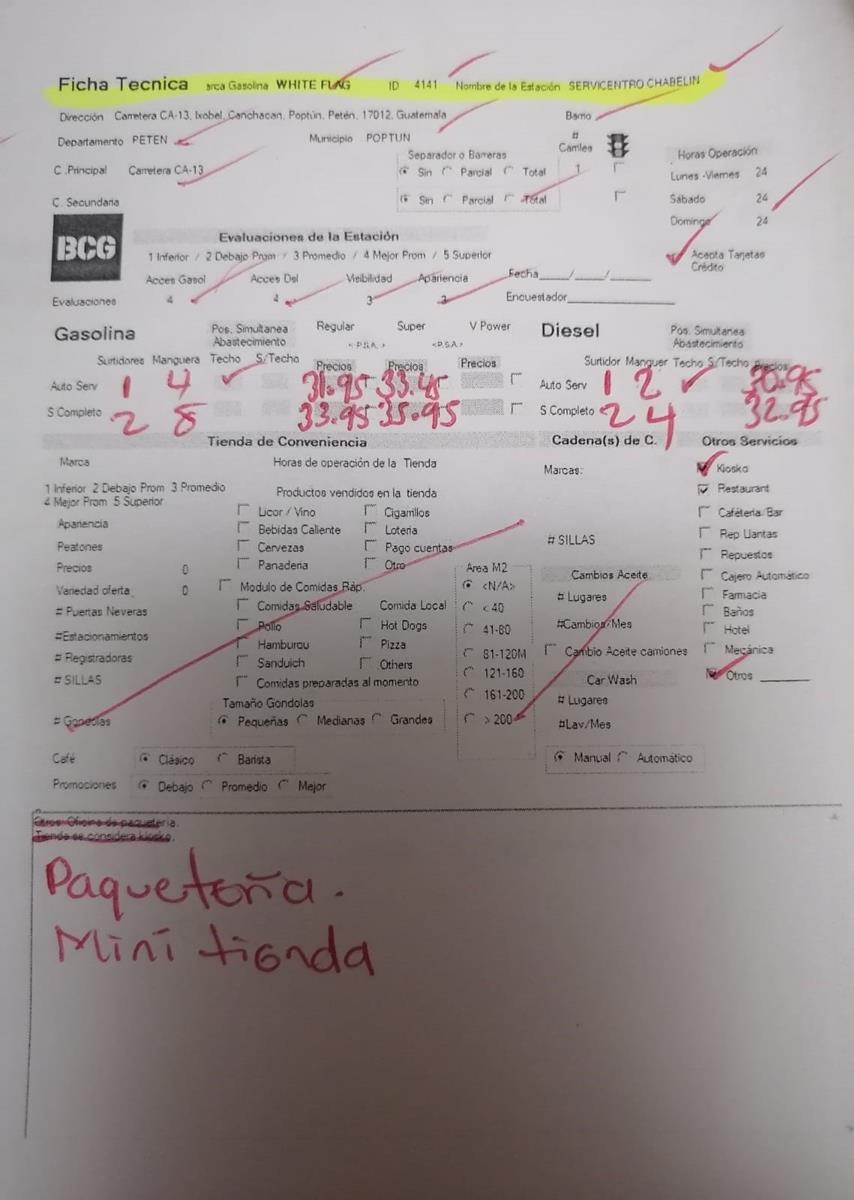 Ficha Tecnica arca Gasolina WHITE FLAG ID 4141 Nombre de la Estación SERVICENTRO CHABELIN
Dirección Carretera CA-13, Ixobel, Canchacan, Poptún, Petén, 17012, Guatemala Barrio
Departamento PETEN Municipio POPTUN # Carriles
Separador o Barreras Horas Operación
C .Principal Carretera CA-13 Sin Parcial Total 1 Lunes -Viernes 24
C. Secundaria Sin Parcial Total Sábado 24
Domingo 24
BCG Evaluaciones de la Estación
1 Inferior / 2 Debajo Prom / 3 Promedio / 4 Mejor Prom / 5 Superior Acepta Tarjetas Crédito
Acces Gasol Acces Dsl Visibilidad Apariencia Fecha___/___/___
Evaluaciones 4 4 3 3 Encuestador
Gasolina Pos. Simultanea Abastecimiento Regular Super V Power Diesel Pos. Simultanea Abastecimiento
Surtidores Manguera Techo S/Techo Precios Precios Precios Surtidor Manguer Techo S/Techo Precios
Auto Serv 1 4 31.95 33.45 Auto Serv 1 2 30.95
S Completo 2 8 33.95 35.95 S Completo 2 4 32.95
Tienda de Conveniencia Cadena(s) de C. Otros Servicios
Marca Horas de operación de la Tienda Marcas: Kiosko
1 Inferior 2 Debajo Prom 3 Promedio Productos vendidos en la tienda Restaurant
4 Mejor Prom 5 Superior
Licor / Vino Cigarrillos Cafétería/Bar
Apariencia Bebidas Caliente Loteria Rep Llantas
Peatones Cervezas Pago cuentas # SILLAS Repuestos
Precios 0 Panaderia Otro Area M2 Cambios Aceite Cajero Automático
Variedad oferta 0 Modulo de Comidas Ráp. <N/A> # Lugares Farmacia
# Puertas Neveras Comidas Saludable Comida Local < 40 Baños
#Estacionamientos Pollo Hot Dogs 41-80 #Cambios/Mes Hotel
# Registradoras Hamburgu Pizza 81-120M Cambio Aceite camiones Mecánica
# SILLAS Sanduich Others 121-160 Car Wash Otros
Comidas preparadas al momento 161-200 # Lugares
# Gondolas Tamaño Gondolas
Pequeñas Medianas Grandes > 200 #Lav/Mes
Café Clásico Barista Manual Automático
Promociones Debajo Promedio Mejor
Otros: Oficina de paqueteria.
Tienda se considera kiosko.
Paquetería.
Mini tienda